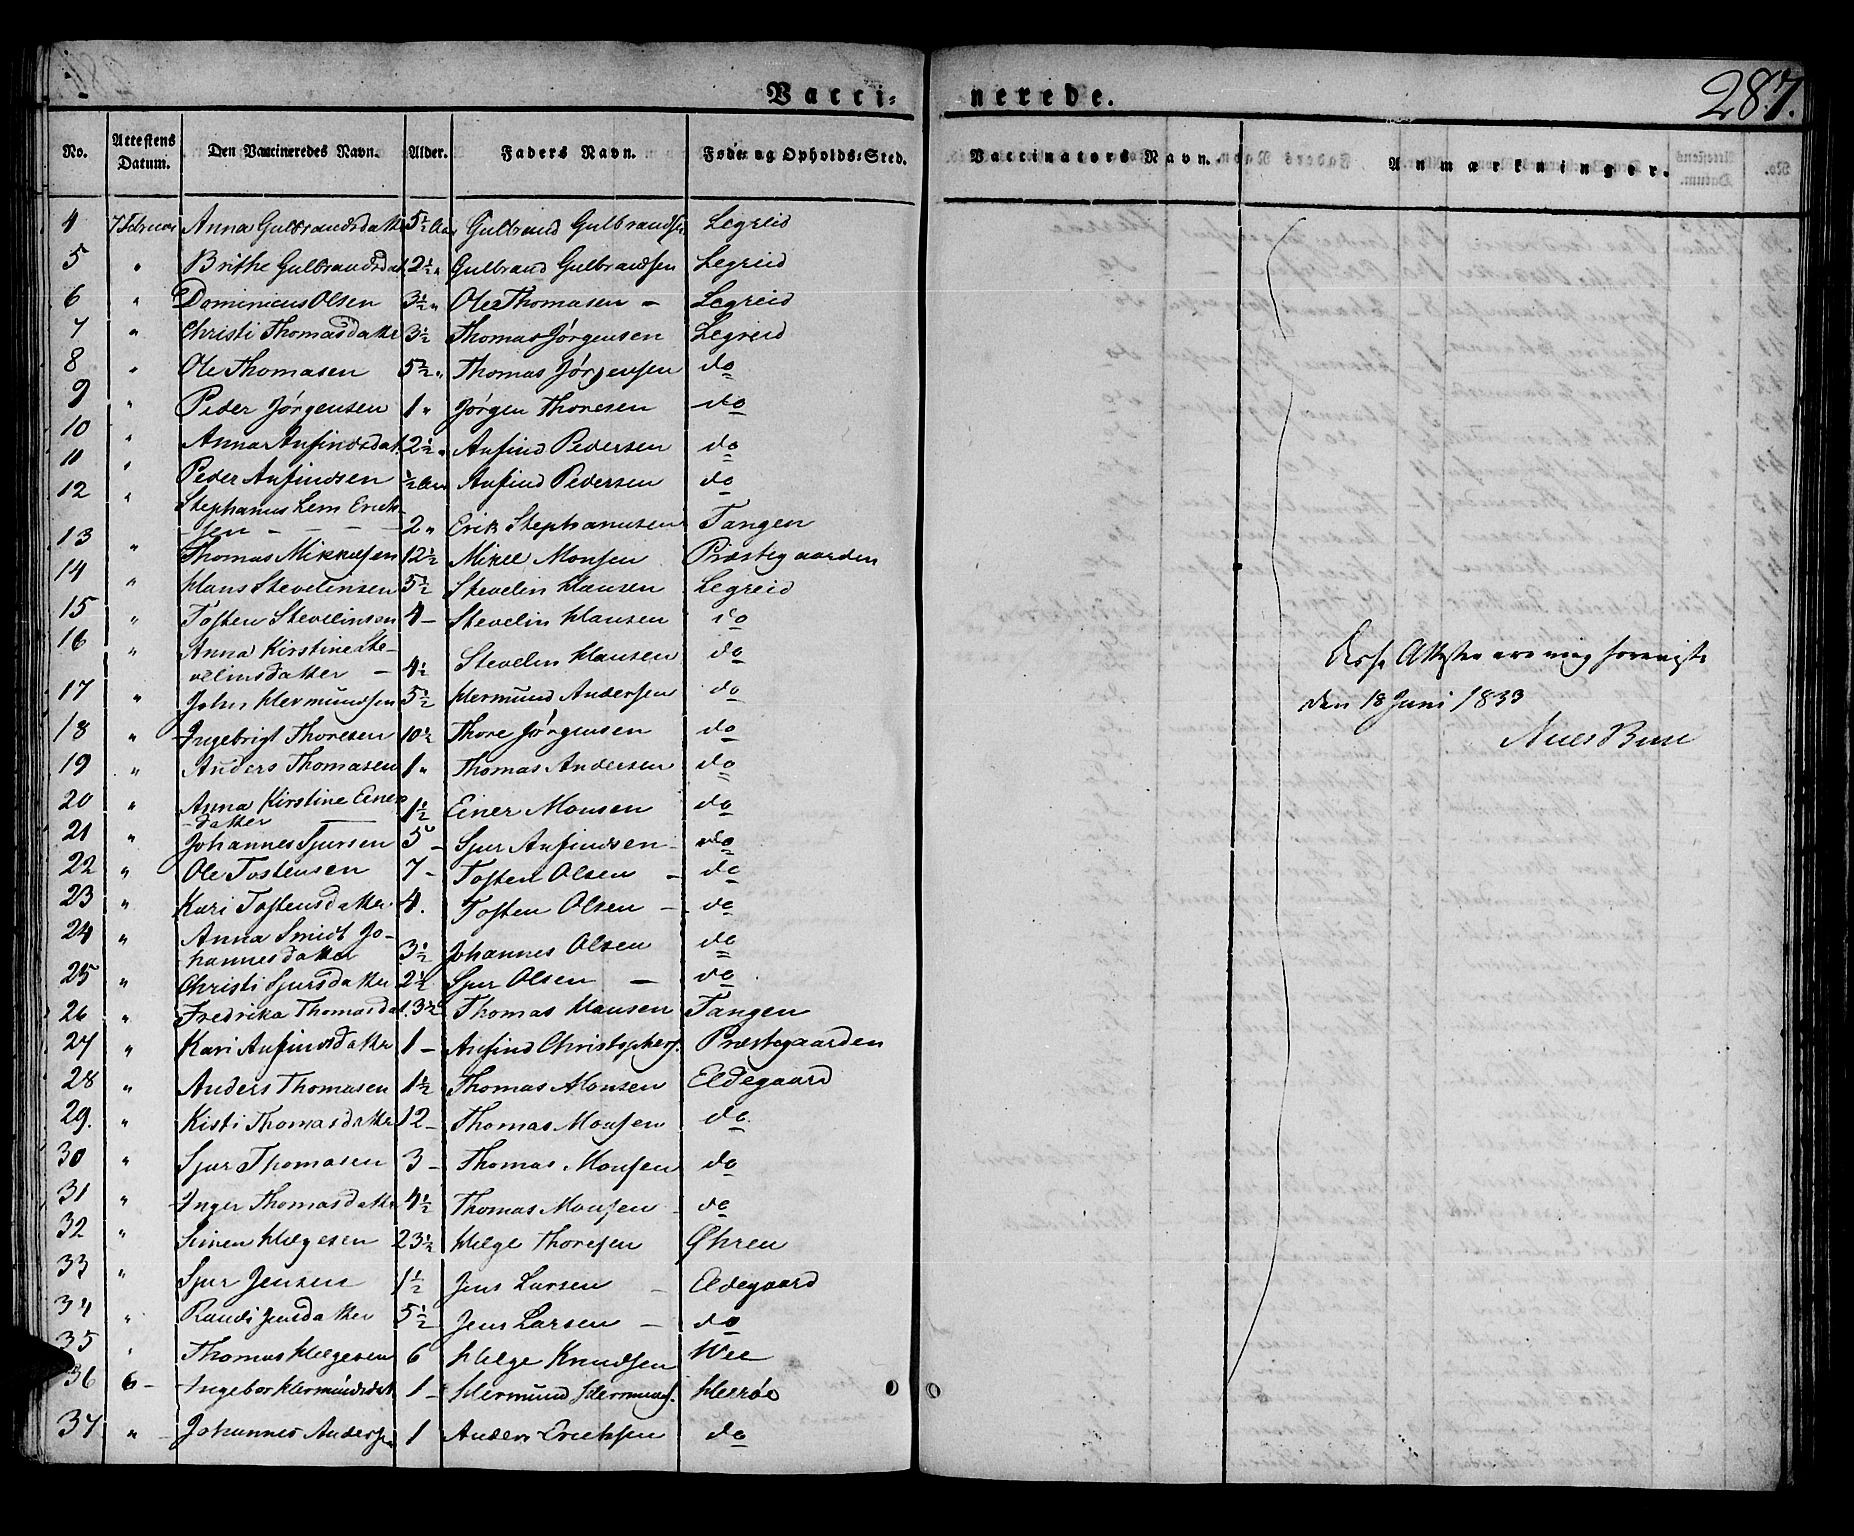 Vacci- nerede. 287.
No. Attestens Datum. Den Vaccineredes Navn. Alder. Faders Navn. Føde og Opholds-Sted. Vaccinators Navn. Anmærkninger.
4 7 Februar Anna Gulbrandsdatter 5½ Aar Gulbrand Gulbrandsen Legreid
5 " Brithe Gulbrandsdat 2½ " Gulbrand Gulbrandsen Legreid
6 " Dominicus Olsen 3½ " Ole Thomasen - Legreid
7 " Christi Thomasdatter 3½ Thomas Jørgensen Legreid
8 " Ole Thomasen 5½ " Thomas Jørgensen do
9 " Peder Jørgensen 1 " Jørgen Thoresen do
10 " Anna Anfindsdat 2½ " Anfind Pedersen do
11 " Peder Anfindsen ½ Aar Anfind Pedersen do
12 " Stephanus Lem Erick-
sen - - - - 2 " Erik Stephanusen Tangen
13 " Thomas Mikkelsen 12½ Mikel Monsen Præstegaarden
14 " Hans Stevelinsen 5½ Stevelin Hansen Legreid
15 " Tosten Stevelinsen 4 - Stevelin Hansen do
16 " Anna Kirstine Ste-
velinsdatter - 4½ Stevelin Hansen do
17 " John Hermundsen 5½ Hermund Andersen do
18 " Ingebrigt Thoresen 10½ Thore Jørgensen do
19 " Anders Thomasen 1 " Thomas Andersen do
20 " Anna Kirstine Einers
-datter 1½ Einer Monsen do
21 " Johannes Sjursen 5 - Sjur Anfindsen - do
22 " Ole Tostensen 7 - Tosten Olsen - do
23 " Kari Tostensdatter 4. Tosten Olsen - do
24 " Anna Smidt Jo-
hannesdatter 3½ Johannes Olsen do
25 " Christi Sjursdatter 2½ Sjur Olsen - do
26 " Fredrika Thomasdat. 3½ Thomas Hansen Tangen
27 " Kari Anfindsdatter 1 - Anfind Christophers. Præstegaarden
28 " Anders Thomasen 1½ Thomas Monsen Eldegaard
29. " Kisti Thomasdatter 12 - Thomas Monsen do
30 " Sjur Thomasen 3 - Thomas Monsen do
31 " Inger Thomasdatter 4½ Thomas Monsen - do
32 " Simen Helgesen 23½ Helge Thoresen Øhren
33 " Sjur Jensen 1½ Jens Larsen - Eldegaard
34 " Randi Jensdatter 5½ Jens Larsen - do
35 " Thomas Helgesen 6 Helge Knudsen Wee
36 6 - Ingebor Hermundsdat 1 - Hermund Hermunds. Herrøe
37 " Johannes Andersen 1 Anders Ericksen do
Disse Attester ere mig foreviste
den 18 Juni 1833